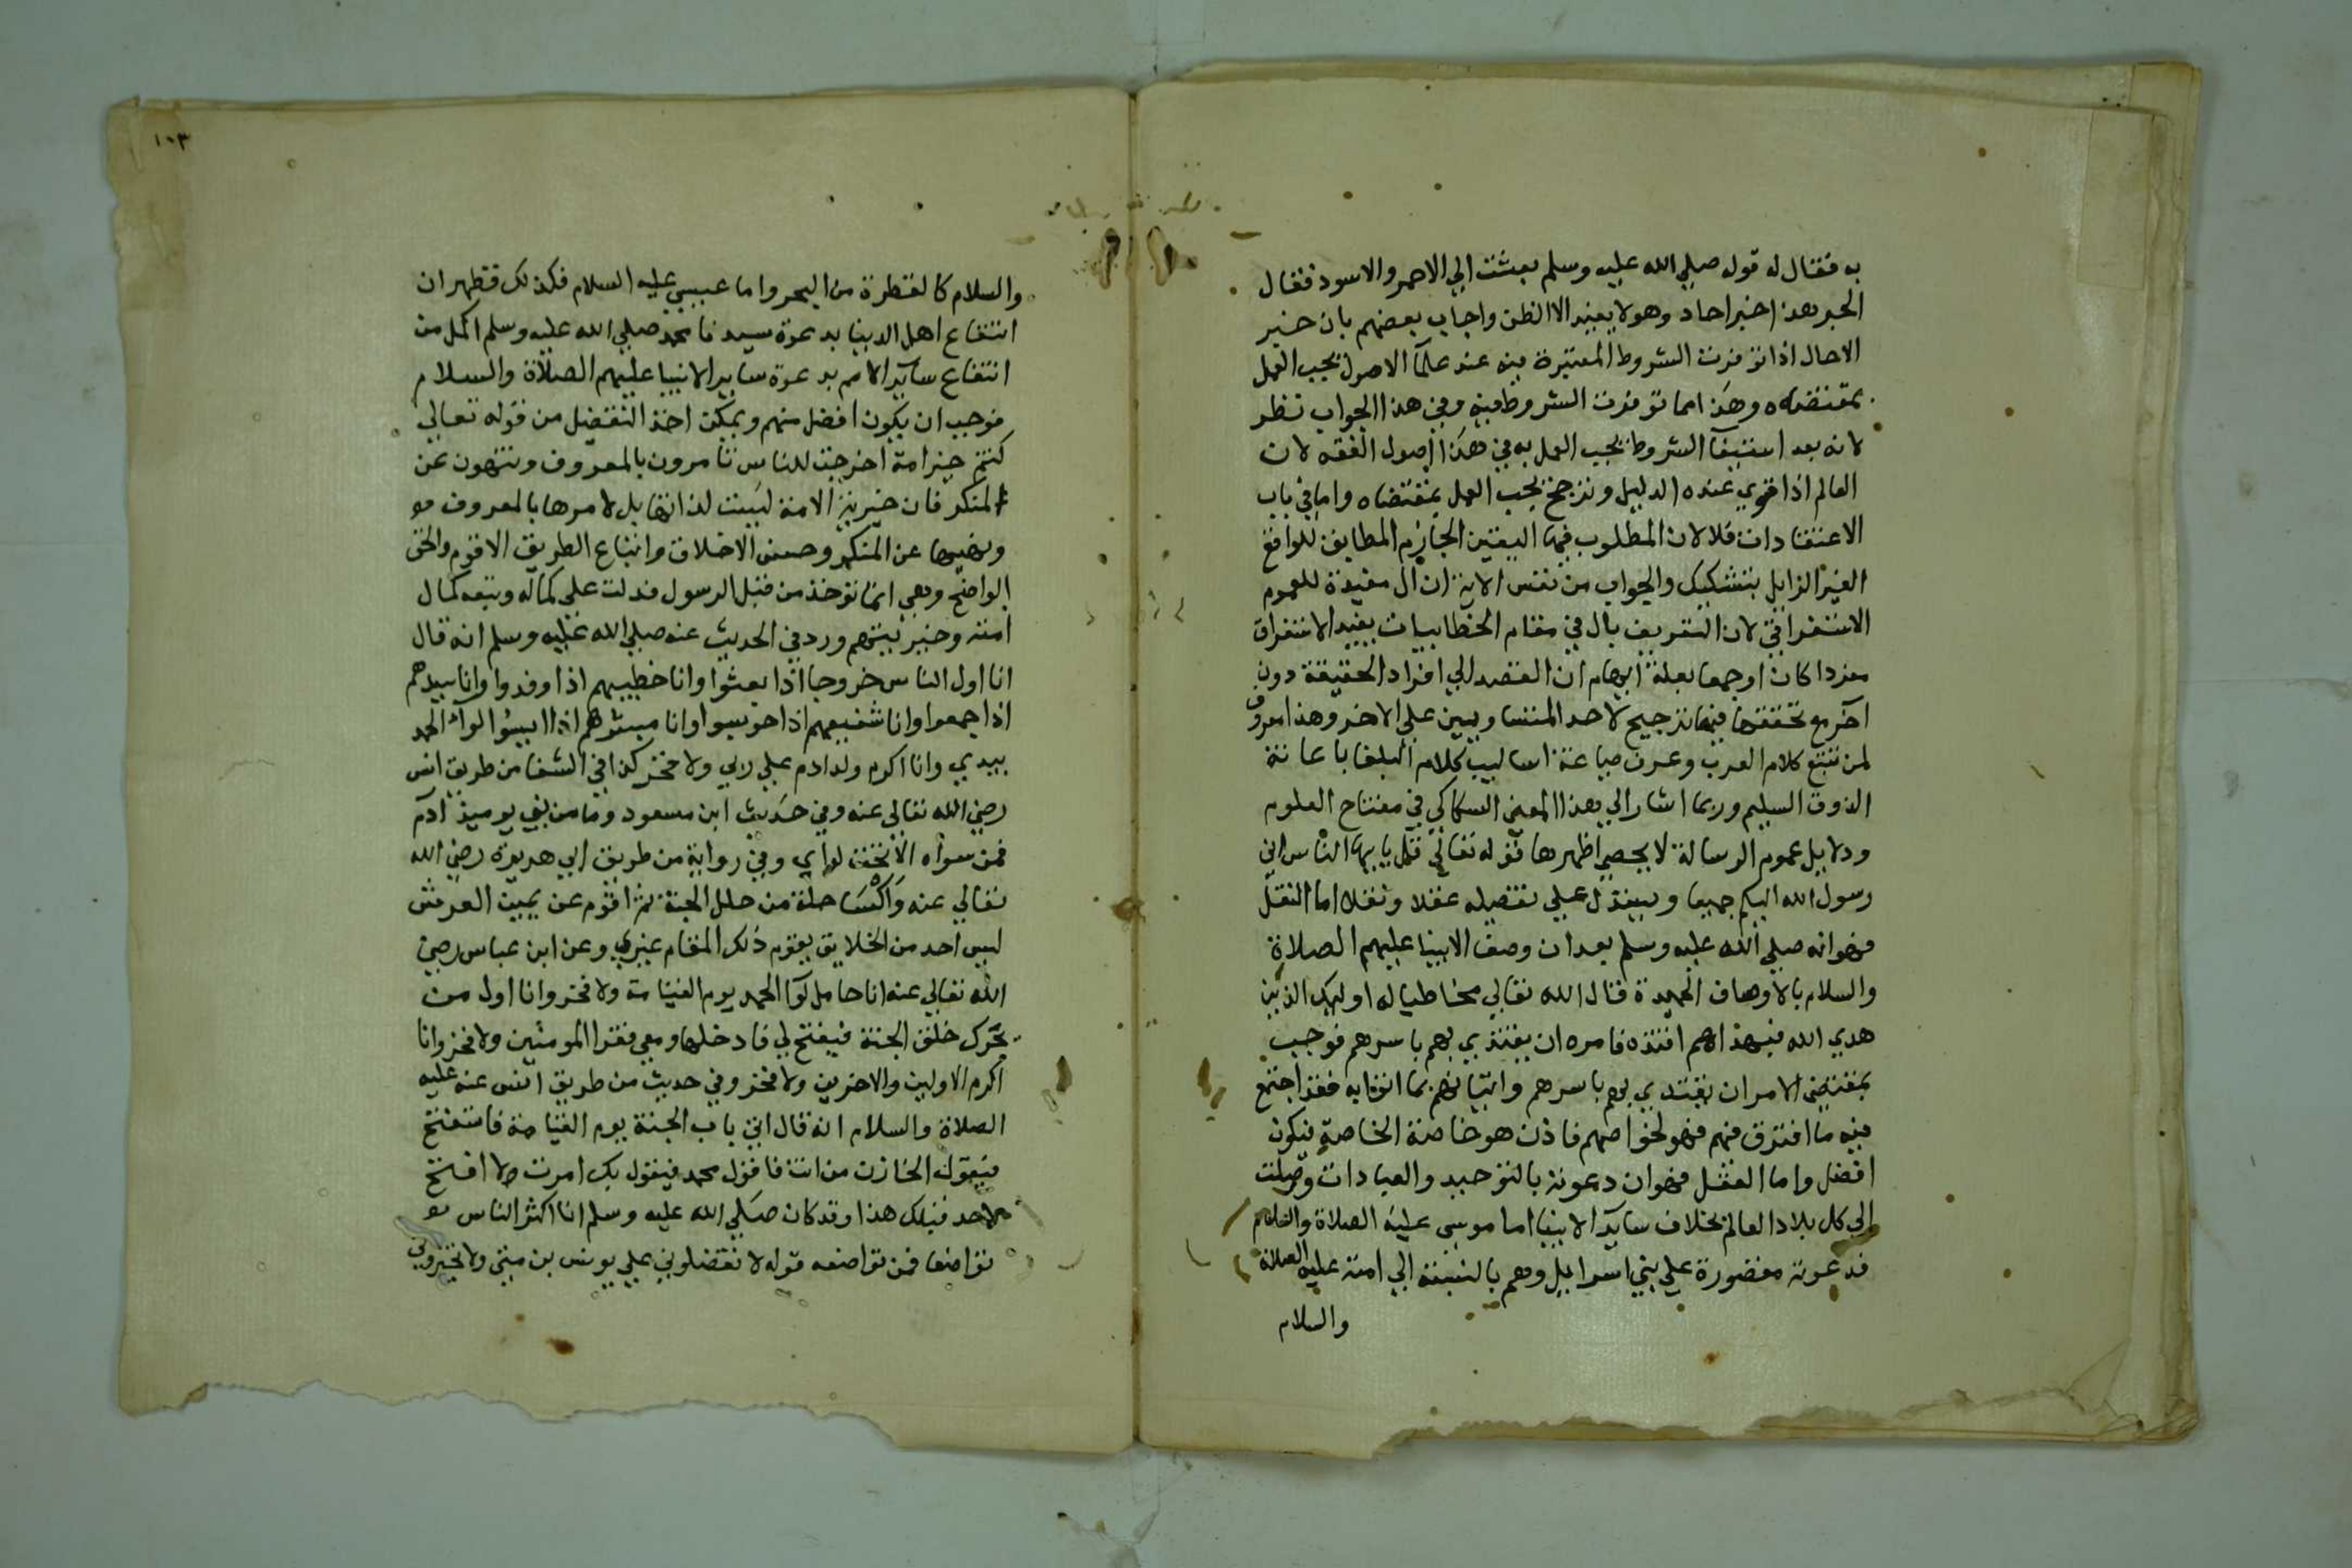 به فقال له قوله صلي الله عليه وسلم بعثت الي الاحمر والاسود فقال
الحبر هذا خبر احاد وهو لا يفيد الا الظن واجاب بعضهم بان خبر
الاحاد اذا توفرت الشروط المعتبرة فيه عند علمآ الاصول يجب العمل
بمقتضاه وهذا مما توفرت الشروط فيه وفي هذا الجواب نظر
لانه بعد استيفآ الشروط يجب العمل به في هذا اصول الفقه لان
العالم اذا قوي عنده الدليل وترجح يجب العمل بمقتضاه واما في باب
الاعتقادات فلا لان المطلوب فيها اليقين الجازم المطابق للواقع
الغير الزايل بتشكيك والجواب من نفس الاية ان ال مفيدة للعموم
الاستغراقي لان التعريف بال في مقام الخطابيات يفيد الاستغراق
مفردا كان او جمعا بعلة ايهام ان القصد الي افراد الحقيقة دون
اخر مع تحققها فيها ترجيح لاحد المتساويين علي الاخر وهذا معروف
لمن تتبع كلام العرب وعرف صياغة اساليب كلام البلغا باعانة
الذوق السليم وربما اشار الي هذا المعني السكاكي في مفتاح العلوم
ودلايل عموم الرسالة لا يحصي اظهرها قوله تعالي قل يا يها الناس اني
رسول الله اليكم جميعا ويستدل علي تفضيله عقلا ونقلا اما النقل
فهو انه صلي الله عليه وسلم بعد ان وصف الانبيا عليهم الصلاة
والسلام بالاوصاف الحميدة قال الله تعالي مخاطبا له اوليك الذين
هدي الله فبهداهم اقتده فامره ان يقتدي بهم باسرهم فوجب
بمقتضي الامر ان يقتدي بهم باسرهم واتيانهم بما اتوا به فقد اجتمع
فيه ما افترق فيهم فهو لخواصهم فاذن هو خاصة الخاصة فيكون
افضل واما العقل فهو ان دعوته بالتوحيد والعبادات وصلت
الي كل بلاد العالم بخلاف ساير الانبيا اما موسي عليه الصلاة والسلام
فدعوته مقصورة علي بني اسرايل وهم بالنسبة الي امته عليه الصلاة
والسلام
١٠٣
والسلام كالقطرة من البحر واما عيسي عليه السلام فكذلك فظهر ان
انتفاع اهل الدنيا بدعوة سيدنا محمد صلي الله عليه وسلم اكمل من
انتفاع ساير الامم بدعوة ساير الانبيا عليهم الصلاة والسلام
فوجب ان يكون افضل منهم ويمكن اخذ التفضيل من قوله تعالي
كنتم خير امة اخرجت للناس تامرون بالمعروف وتنهون عن
المنكر فان خيرية الامة ليست لذاتها بل لامرها بالمعروف
ونهيها عن المنكر وحسن الاخلاق واتباع الطريق الاقوم والحق
الواضح وهي انما توخذ من قبل الرسول فدلت علي كماله ويتبعه كمال
امته وخيريتهم ورد في الحديث عنه صلي الله عليه وسلم انه قال
انا اول الناس خروجا اذا بعثوا وانا خطيبهم اذا وفدوا وانا سيدهم
اذا جمعوا وانا شفيعهم اذا حوسبوا وانا مبشرهم اذا ايسوا لوآء الحمد
بيدي وانا اكرم ولد ادم علي ربي ولا فخر كذا في الشفا من طريق انس
رضي الله تعالي عنه وفي حديث ابن مسعود وما من نبي يوميذ ادم
فمن سواه الا تحت لواي وفي رواية من طريق ابي هريرة رضي الله
تعالي عنه واكسا حلة من حلل الجنة ثم اقوم عن يمين العرش
ليس احد من الخلايق يقوم ذلك المقام غيري وعن ابن عباس رضي
الله تعالي عنه انا حامل لوآ الحمد يوم القيامة ولا فخر وانا اول من
يحرك حلق الجنة فيفتح لي فادخلها ومعي فقرا المومنين ولا فخر وانا
اكرم الاولين والاخرين ولا فخر وفي حديث من طريق انس عنه عليه
الصلاة والسلام انه قال اتي باب الجنة يوم القيامة فاستفتح
فيقول الخازن من انت فاقول محمد فيقول بك امرت لا افتح
لاحد قبلك هذا وقد كان صلي الله عليه وسلم انا اكثر الناس
تواضعا فمن تواضعه قوله لا تفضلوني علي يونس بن متي ولا تخيروني